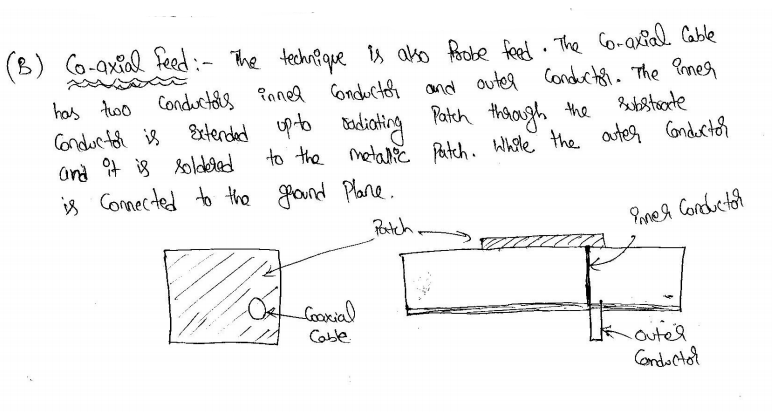 (B) Co-axial feed :- The technique is also Probe feed. The Co-axial Cable
has two Conductors inner Conductor and outer Conductor. The inner
Conductor is Extended upto radiating Patch through the Substrate
and it is soldered to the metallic Patch. While the outer Conductor
is Connected to the ground Plane.
Patch
inner Conductor
Coaxial
Cable
outer
Conductor